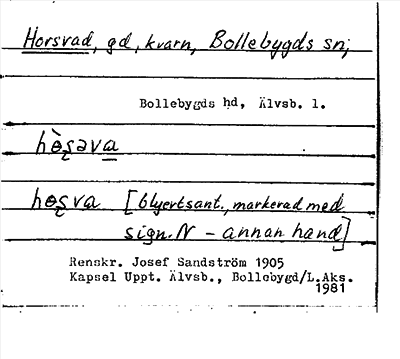 Horsvad, gd, kvarn, Bollebygds sn;
Bollebygds hd, Älvsb. l.
hɵ̀s̨əva
hɵs̨va [blyertsant., markerad med
sign. N – annan hand]
Renskr. Josef Sandström 1905
Kapsel Uppt. Älvsb., Bollebygd/L.Aks.
1981